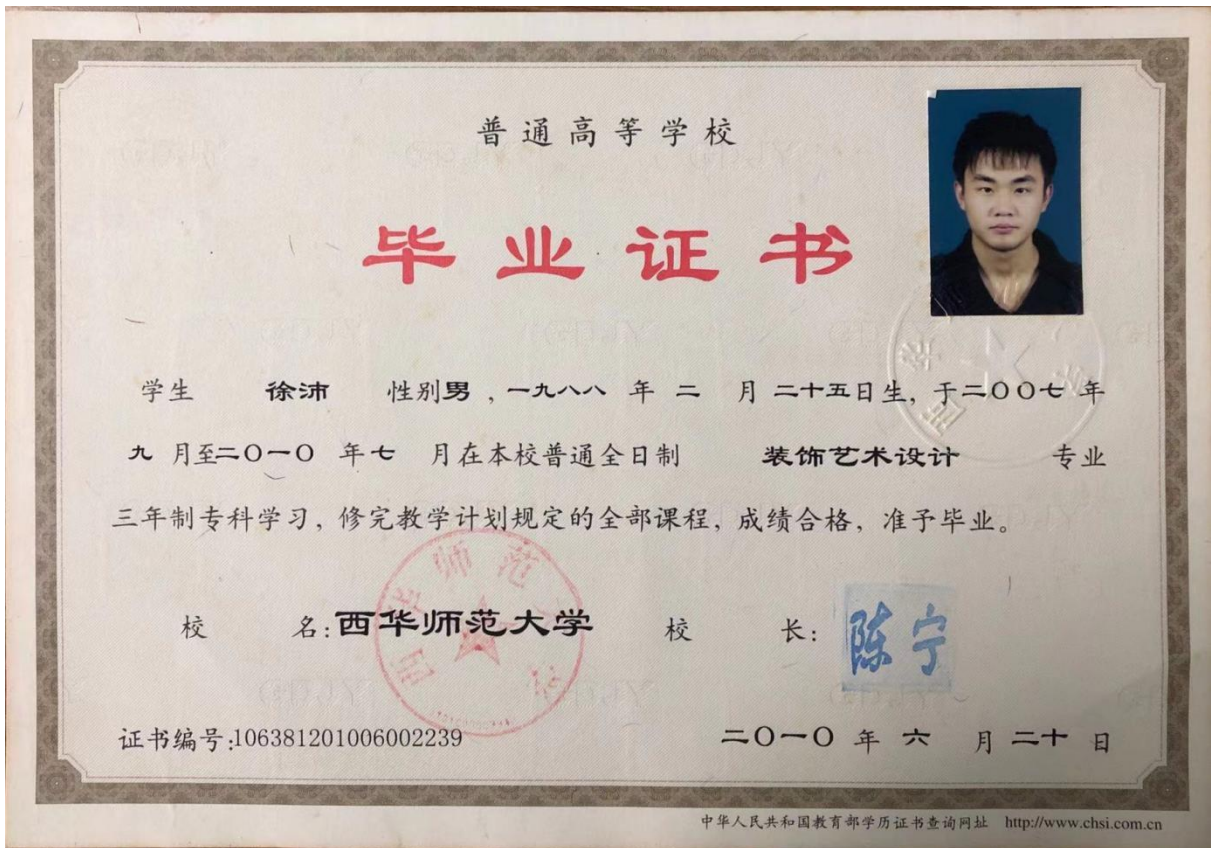 普通高等学校
毕业证书
学生 徐沛 性别男，一九八八 年 二 月 二十五日生，于二〇〇七 年
九 月至二〇一〇 年七 月在本校普通全日制 装饰艺术设计 专业
三年制专科学习，修完教学计划规定的全部课程，成绩合格，准予毕业。
校 名：西华师范大学 校 长：陈宁
证书编号：106381201006002239 二〇一〇 年 六 月 二十 日
中华人民共和国教育部学历证书查询网址 http://www.chsi.com.cn